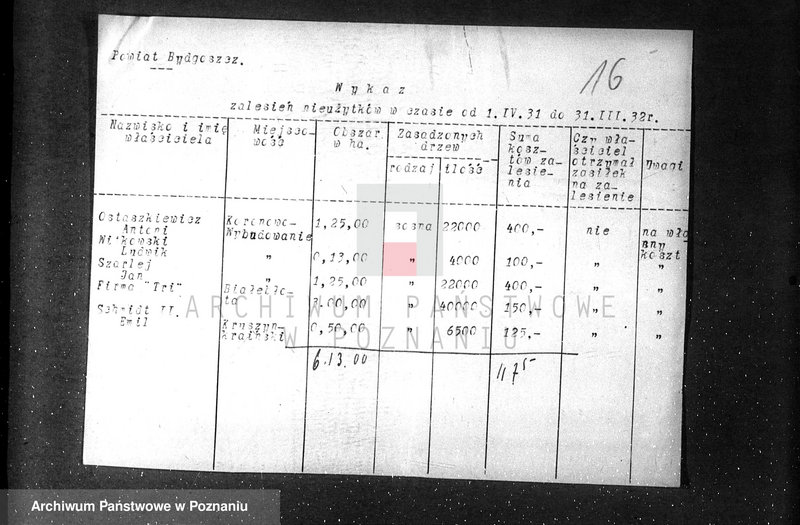 Powiat Bydgoszcz.
16
Wykaz
zalesień nieużytków w czasie od 1.IV.31 do 31.III.32r.
Nazwisko i imię właściciela
Miejscowość
Obszar w ha.
Zasadzonych drzew
rodzaj
ilość
Suma kosztów zalesienia
Czy właściciel otrzymał zasiłek na zalesienie
Uwagi
Ostaszkiewicz Antoni
Koronowo-Wybudowanie
1,25,00 sosna 22000 400,- nie na wła sny koszt
Witkowski Ludwik
" 0,13,00 " 4000 100,- " "
Szarlej Jan
" 1,25,00 " 22000 400,- " "
Firma "Tri"
3.00,00 " 40000 150,- " "
Schmidt Emil
0,50,00 " 6500 125,- " "
6.13.00
1175-
ARCHIWUM PAŃSTWOWE
W POZNANIU
Archiwum Państwowe w Poznaniu